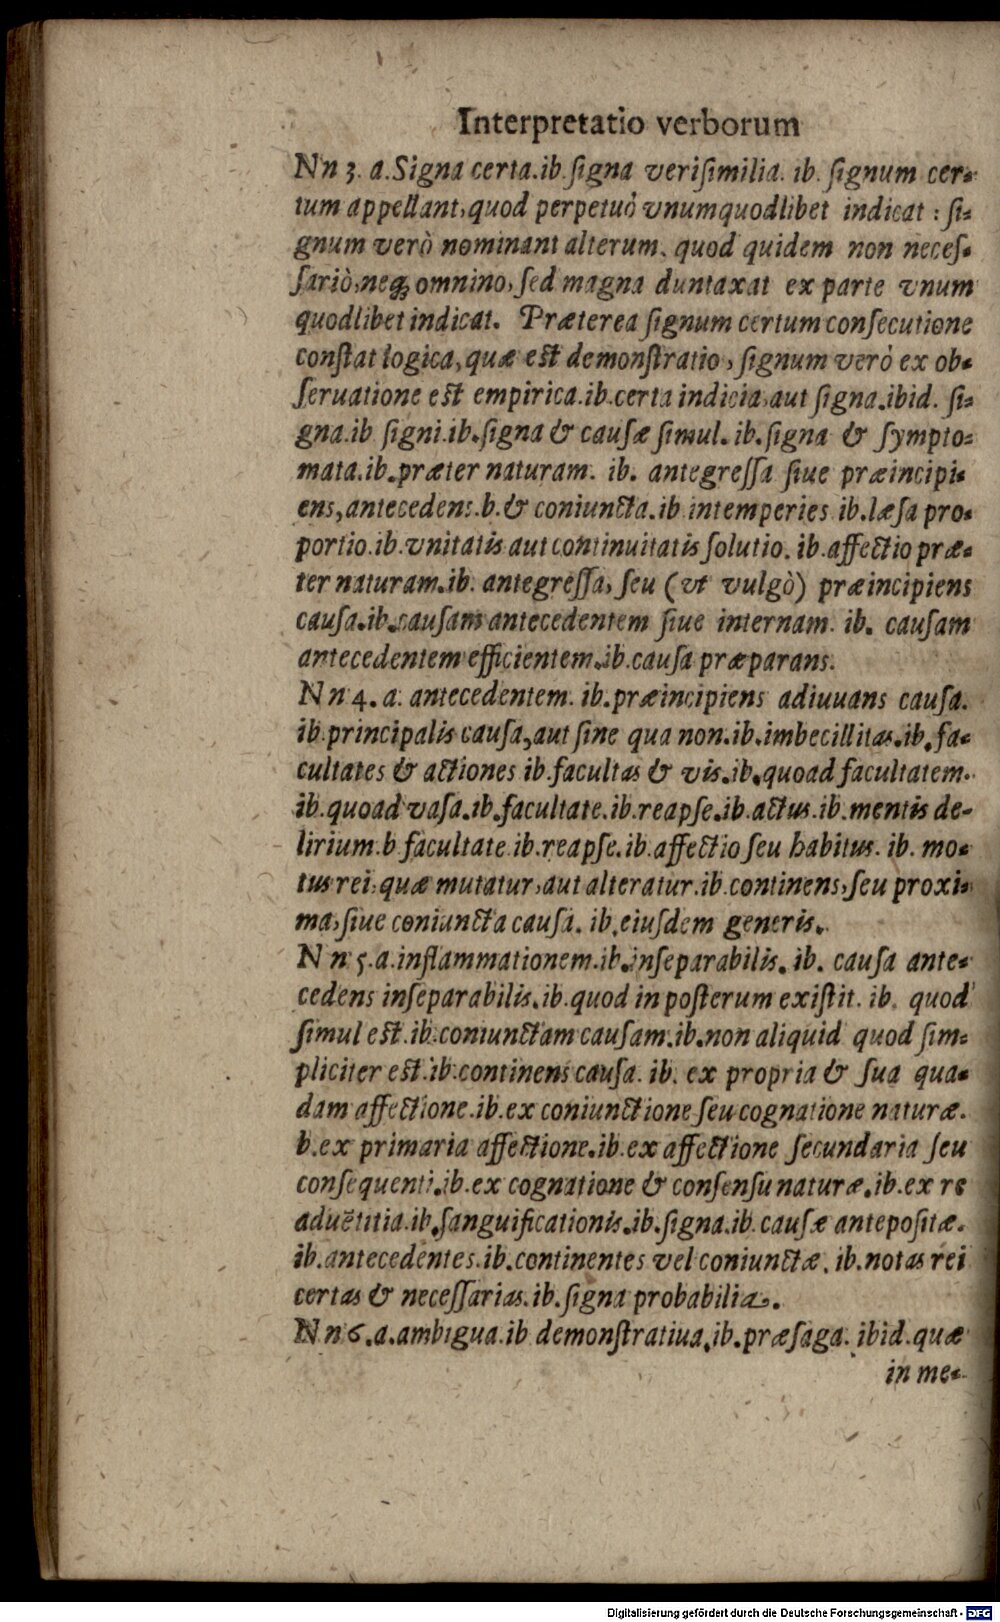 Interpretatio verborum
Nn 3. a. Signa certa. ib. ſigna veriſimilia. ib. ſignum cer-
tum appellant, quod perpetuò vnumquodlibet indicat : ſi-
gnum verò nominant alterum, quod quidem non neceſ-
ſariò, neq; omnino, ſed magna duntaxat ex parte vnum
quodlibet indicat. Præterea ſignum certum conſecutione
conſtat logica, quæ eſt demonſtratio, ſignum verò ex ob-
ſeruatione eſt empirica. ib. certa indicia, aut ſigna. ibid. ſi-
gna. ib ſigni. ib. ſigna & cauſæ ſimul. ib. ſigna & ſympto-
mata. ib. præter naturam. ib. antegreſſa ſiue præincipi-
ens, antecedens. b. & coniuncta. ib intemperies ib. læſa pro-
portio. ib. vnitatis aut continuitatis ſolutio. ib. affectio præ-
ter naturam. ib. antegreſſa, ſeu (vt vulgò) præincipiens
cauſa. ib. cauſam antecedentem ſiue internam. ib. cauſam
antecedentem efficientem. ib. cauſa præparans.
Nn 4. a. antecedentem. ib. præincipiens adiuuans cauſa.
ib. principalis cauſa, aut ſine qua non. ib. imbecillitas. ib. fa-
cultates & actiones ib. facultas & vis. ib. quoad facultatem.
ib. quoad vaſa. ib. facultate. ib. reapſe. ib. actus. ib. mentis de-
lirium. b facultate. ib. reapſe. ib. affectio ſeu habitus. ib. mo-
tus rei, quæ mutatur, aut alteratur. ib. continens, ſeu proxi-
ma, ſiue coniuncta cauſa. ib. eiuſdem generis.
Nn 5. a. inflammationem. ib. inſeparabilis. ib. cauſa ante-
cedens inſeparabilis. ib. quod in poſterum exiſtit. ib. quod
ſimul eſt. ib. coniunctam cauſam. ib. non aliquid quod ſim-
pliciter eſt. ib. continens cauſa. ib. ex propria & ſua qua-
dam affectione. ib. ex coniunctione ſeu cognatione naturæ.
b. ex primaria affectione. ib. ex affectione ſecundaria ſeu
conſequenti. ib. ex cognatione & conſenſu naturæ. ib. ex re
aduētitia. ib. ſanguificationis. ib. ſigna. ib. cauſæ antepoſitæ.
ib. antecedentes. ib. continentes vel coniunctæ. ib. notas rei
certas & neceſſarias. ib. ſigna probabilia.
Nn 6. a. ambigua. ib demonſtratiua. ib. præſaga. ibid. quæ
in me-
Digitalisierung gefördert durch die Deutsche Forschungsgemeinschaft - DFG